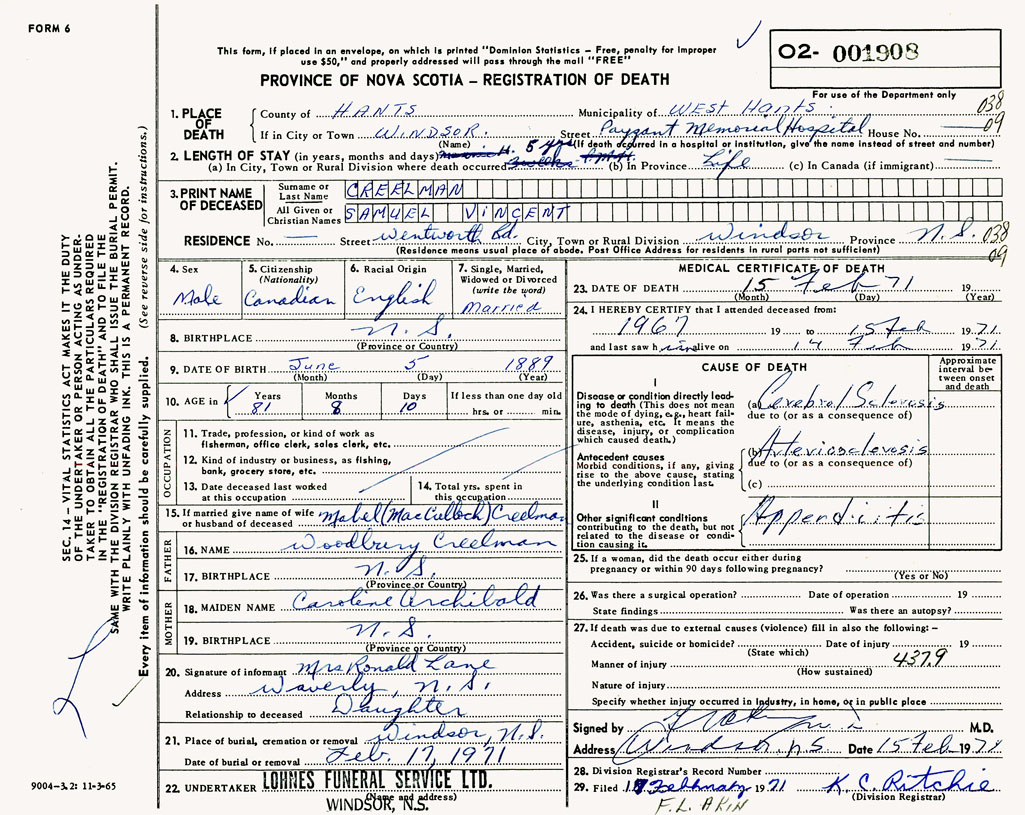 FORM 6
O2- 001908
This form, if placed in an envelope, on which is printed "Dominion Statistics – Free, penalty for improper
use $50," and properly addressed will pass through the mail "FREE"
PROVINCE OF NOVA SCOTIA – REGISTRATION OF DEATH
For use of the Department only
038
09
1. PLACE OF DEATH
County of HANTS Municipality of WEST Hants.
If in City or Town WINDSOR. Street Payzant Memorial Hospital House No.
(Name) (If death occurred in a hospital or institution, give the name instead of street and number)
2. LENGTH OF STAY (in years, months and days) 5 yrs
(a) In City, Town or Rural Division where death occurred (b) In Province Life (c) In Canada (if immigrant)
3. PRINT NAME OF DECEASED
Surname or Last Name CREELMAN
All Given or Christian Names SAMUEL VINCENT
RESIDENCE No. Street Wentworth Rd. City, Town or Rural Division Windsor Province N.S. 038
(Residence means usual place of abode. Post Office Address for residents in rural parts not sufficient) 09
4. Sex Male
5. Citizenship (Nationality) Canadian
6. Racial Origin English
7. Single, Married, Widowed or Divorced (write the word) Married
8. BIRTHPLACE N.S.
(Province or Country)
9. DATE OF BIRTH June 5 1889
(Month) (Day) (Year)
10. AGE in Years Months Days If less than one day old
81 8 10 hrs. or min.
OCCUPATION
11. Trade, profession, or kind of work as
fisherman, office clerk, sales clerk, etc.
12. Kind of industry or business, as fishing,
bank, grocery store, etc.
13. Date deceased last worked at this occupation
14. Total yrs. spent in this occupation
15. If married give name of wife or husband of deceased Mabel (MacCulloch) Creelman
FATHER
16. NAME Woodbury Creelman
17. BIRTHPLACE N.S.
(Province or Country)
MOTHER
18. MAIDEN NAME Caroline Archibald
19. BIRTHPLACE N.S.
(Province or Country)
20. Signature of informant Mrs Ronald Lane
Address Waverly, N.S.
Relationship to deceased Daughter
21. Place of burial, cremation or removal Windsor, N.S.
Date of burial or removal Feb. 17, 1971
22. UNDERTAKER LOHNES FUNERAL SERVICE LTD.
(Name and address)
WINDSOR, N.S.
MEDICAL CERTIFICATE OF DEATH
23. DATE OF DEATH 15 Feb 71 19
(Month) (Day) (Year)
24. I HEREBY CERTIFY that I attended deceased from:
1967 19 to 15 Feb 1971
and last saw him alive on 14 Feb 1971
CAUSE OF DEATH
Approximate interval between onset and death
I
Disease or condition directly leading
to death (This does not mean
the mode of dying, e.g., heart failure,
asthenia, etc. It means the
disease, injury, or complication
which caused death.)
(a) Cerebral Sclerosis
due to (or as a consequence of)
Antecedent causes
Morbid conditions, if any, giving
rise to the above cause, stating
the underlying condition last.
(b) Arteriosclerosis
due to (or as a consequence of)
(c)
II
Other significant conditions
contributing to the death, but not
related to the disease or condition
causing it.
Appendicitis
25. If a woman, did the death occur either during
pregnancy or within 90 days following pregnancy?
(Yes or No)
26. Was there a surgical operation? Date of operation 19
State findings Was there an autopsy?
27. If death was due to external causes (violence) fill in also the following: –
Accident, suicide or homicide? Date of injury 19
(State which)
Manner of injury 437.9
(How sustained)
Nature of injury
Specify whether injury occurred in industry, in home, or in public place
Signed by M.D.
Address Windsor, N.S Date 15 Feb 1971
28. Division Registrar's Record Number
29. Filed February 1971 K. C. Ritchie
(Division Registrar)
F. L. AKIN
SEC. 14 – VITAL STATISTICS ACT MAKES IT THE DUTY
OF THE UNDERTAKER OR PERSON ACTING AS UNDERTAKER
TO OBTAIN ALL THE PARTICULARS REQUIRED
IN THE "REGISTRATION OF DEATH" AND TO FILE THE
SAME WITH THE DIVISION REGISTRAR WHO SHALL ISSUE THE BURIAL PERMIT.
WRITE PLAINLY WITH UNFADING INK. THIS IS A PERMANENT RECORD.
Every item of information should be carefully supplied. (See reverse side for instructions.)
9004-3.2: 11-3-65